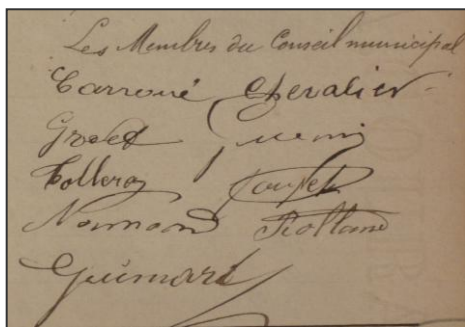 Les Membres du Conseil municipal
Carroué Chevalier
Grolet
Tolleron
Normand Rolland
Guimard